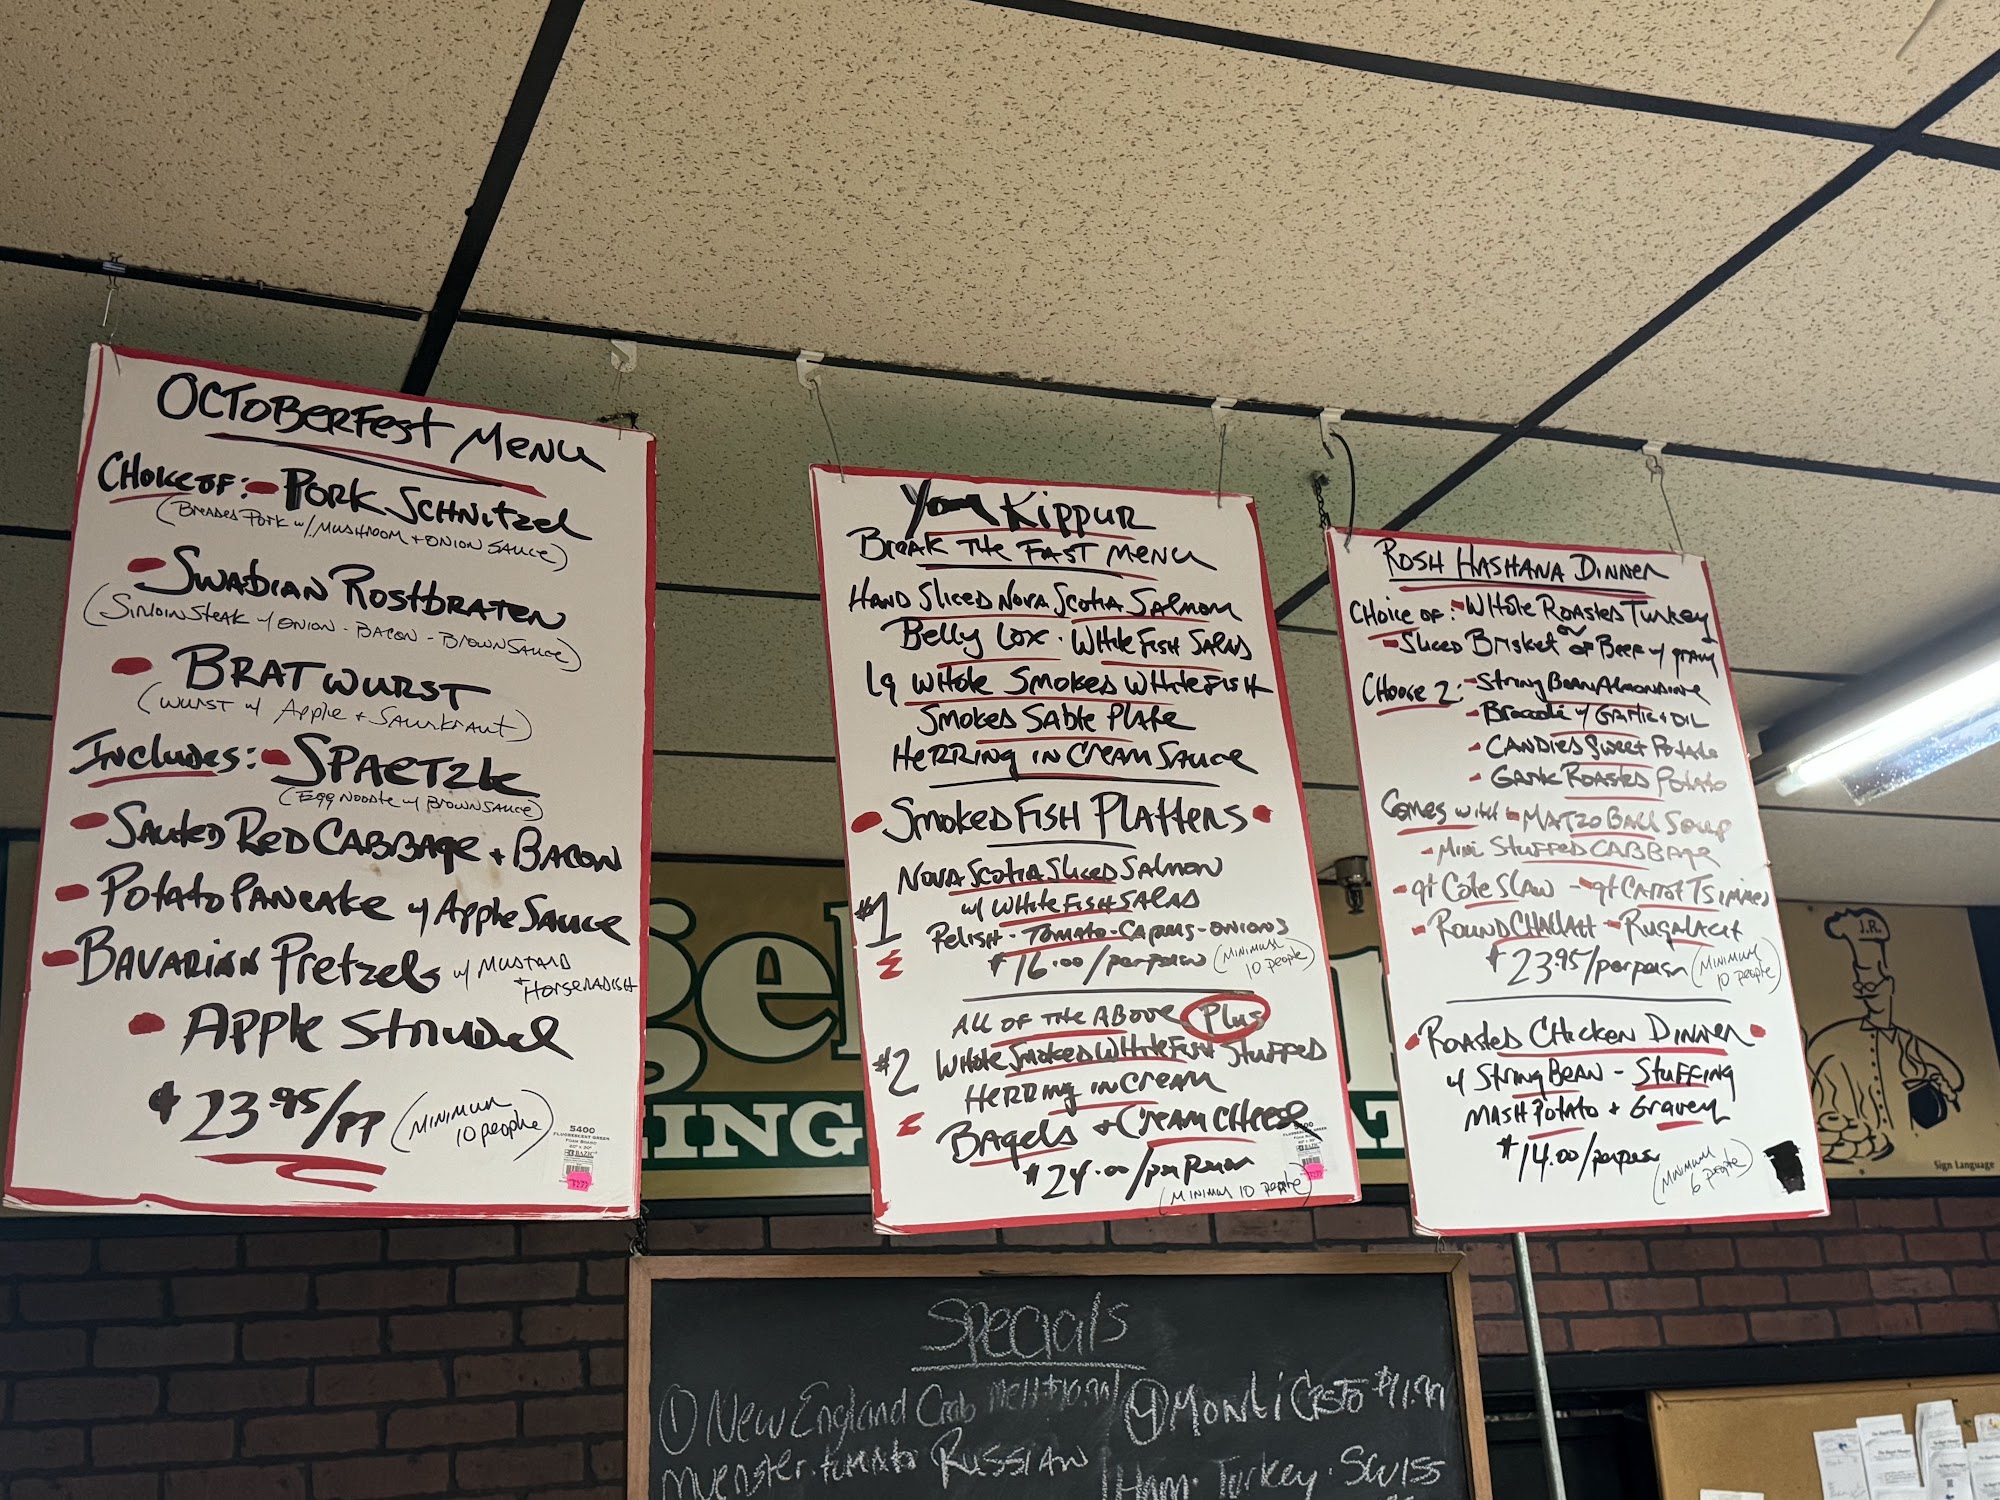 OCTOBERFEST MENU
CHOICE OF: - PORK SCHNITZEL
(BREADED PORK w/ MUSHROOM + ONION SAUCE)
- SWABIAN ROSTBRATEN
(SIRLOIN STEAK w/ ONION - BACON - BROWN SAUCE)
- BRATWURST
(WURST w/ APPLE + SAURKRAUT)
INCLUDES: - SPAETZLE
(EGG NOODLE w/ BROWN SAUCE)
- SAUTEED RED CABBAGE + BACON
- POTATO PANCAKE w/ APPLE SAUCE
- BAVARIAN PRETZELS w/ MUSTARD
+ HORSERADISH
- APPLE STRUDEL
$23.95/PP (MINIMUM
10 people)
5400
FLUORESCENT GREEN
FOAM BOARD
20" X 30"
BAZIC
YOM KIPPUR
BREAK THE FAST MENU
HAND SLICED NOVA SCOTIA SALMON
BELLY LOX - WHITE FISH SALAD
LG WHOLE SMOKED WHITEFISH
SMOKED SABLE PLATE
HERRING IN CREAM SAUCE
- SMOKED FISH PLATTERS -
#1
NOVA SCOTIA SLICED SALMON
w/ WHITE FISH SALAD
RELISH - TOMATO - CAPERS - ONIONS
$16.00/per person (MINIMUM
10 people)
ALL OF THE ABOVE Plus
#2 WHOLE SMOKED WHITE FISH STUFFED
HERRING IN CREAM
BAGELS + CREAM CHEESE
$24.00/per Person
(MINIMUM 10 people)
ROSH HASHANA DINNER
CHOICE OF: - WHOLE ROASTED TURKEY
or
- SLICED BRISKET OF BEEF w/ gravy
CHOOSE 2: - STRING BEAN ALMONDINE
- Broccoli w/ GARLIC + OIL
- CANDIED SWEET POTATO
- GARLIC ROASTED POTATO
COMES WITH - MATZO BALL SOUP
- MINI STUFFED CABBAGE
- qt COLE SLAW - qt CARROT TSIMMES
- ROUND CHALLAH - RUGALACH
$23.95/per person (MINIMUM
10 people)
- ROASTED CHICKEN DINNER -
w/ STRING BEAN - STUFFING
MASH POTATO + GRAVEY
$14.00/per person
(MINIMUM
6 people)
J.R.
Sign Language
Specials
① New England Crab melt $10.99
muenster. tomato Russian
④ Monti Cristo $11.99
Ham. Turkey. Swiss